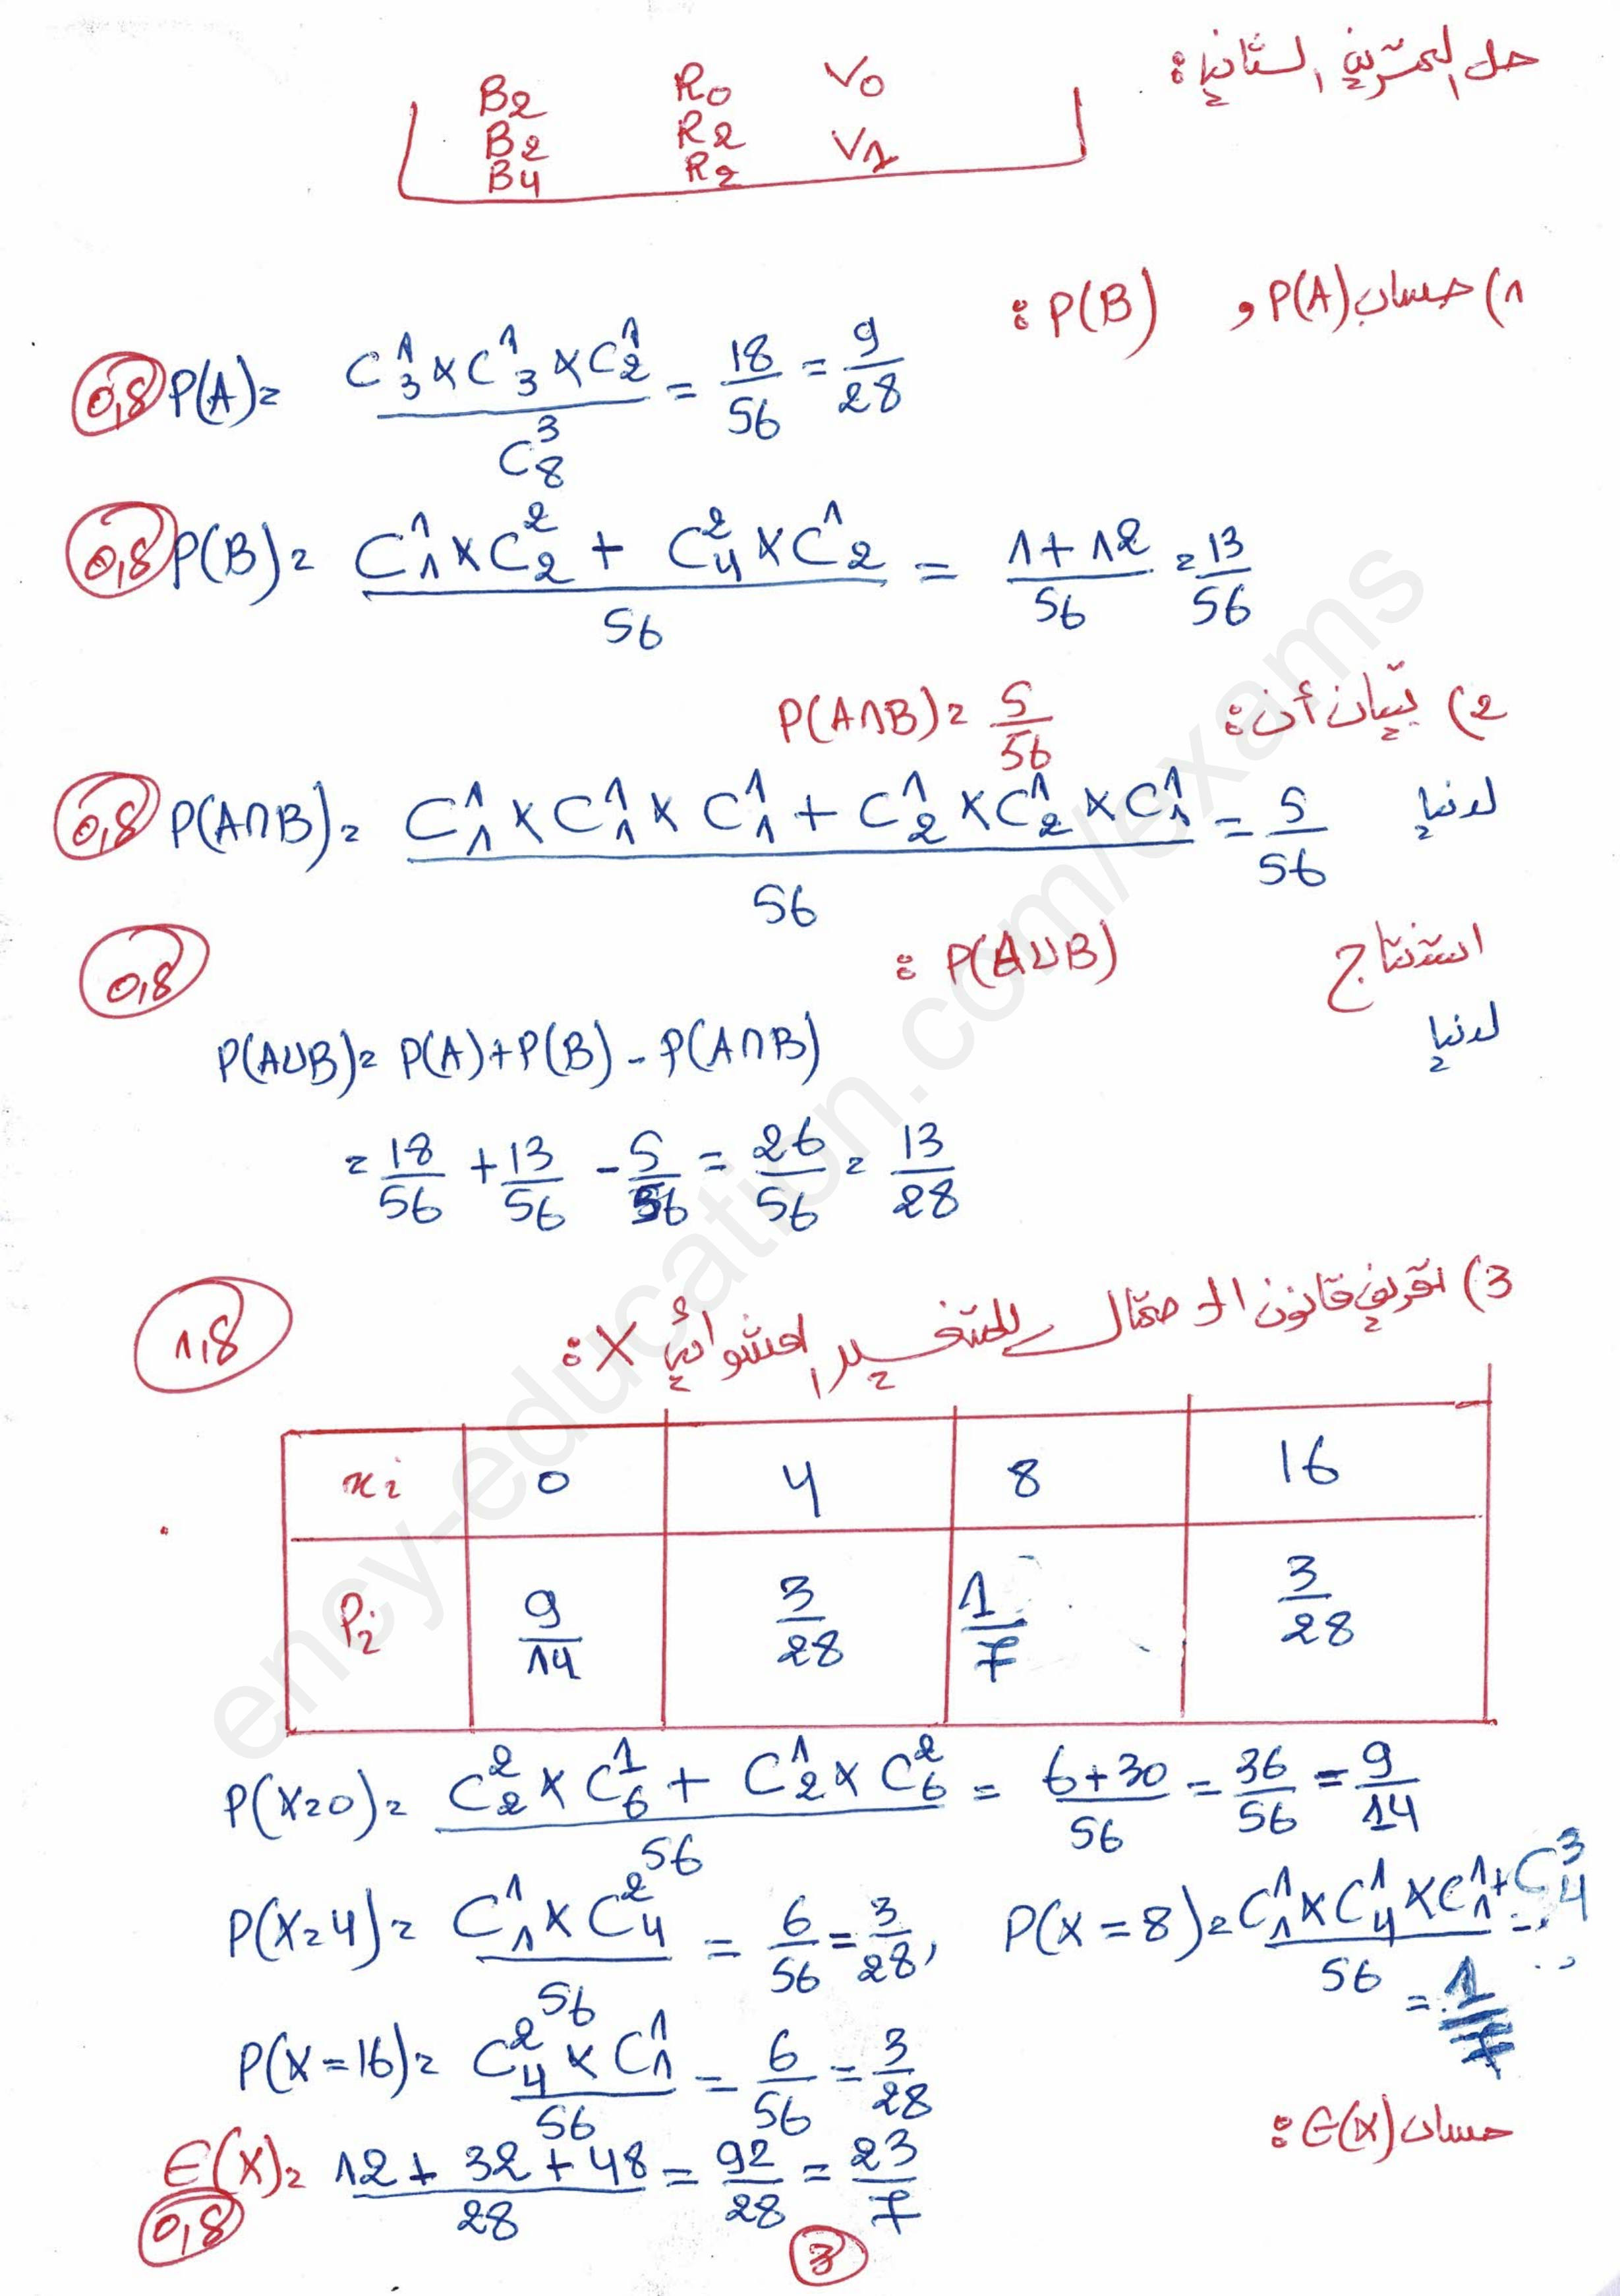 حل التمرين الثاني:
B2 R0 V0
B2 R2 V1
B4 R2
1) حساب P(A) و P(B) :
0,8 P(A) = (C_3^1 × C_3^1 × C_2^1) / C_8^3 = 18/56 = 9/28
0,8 P(B) = (C_1^1 × C_2^2 + C_4^2 × C_2^1) / 56 = (1+12)/56 = 13/56
2) تبيان أن: P(A∩B) = 5/56
لدينا 0,8 P(A∩B) = (C_1^1 × C_1^1 × C_1^1 + C_2^1 × C_2^1 × C_1^1) / 56 = 5/56
استنتاج P(A∪B) :
0,8
لدينا
P(A∪B) = P(A) + P(B) - P(A∩B)
= 18/56 + 13/56 - 5/56 = 26/56 = 13/28
3) تعريف قانون الاحتمال للمتغير العشوائي X :
1,8
xi 0 4 8 16
Pi 9/14 3/28 1/7 3/28
P(X=0) = (C_2^2 × C_6^1 + C_2^1 × C_6^2) / 56 = (6+30)/56 = 36/56 = 9/14
P(X=4) = (C_1^1 × C_4^2) / 56 = 6/56 = 3/28 , P(X=8) = (C_1^1 × C_4^1 × C_1^1 + C_4^3) / 56 = 1/7
P(X=16) = (C_4^2 × C_1^1) / 56 = 6/56 = 3/28
حساب E(X) :
E(X) = (12 + 32 + 48) / 28 = 92/28 = 23/7
0,8
3
ency-education.com/exams